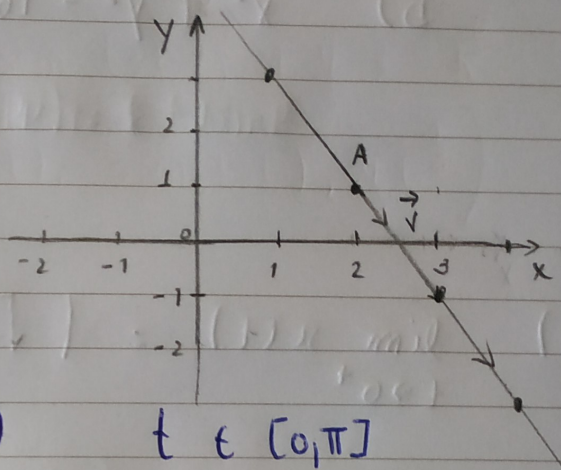 Y
2
A
1
v
0
-2 -1 1 2 3 x
-1
-2
) t ∈ [0,π]